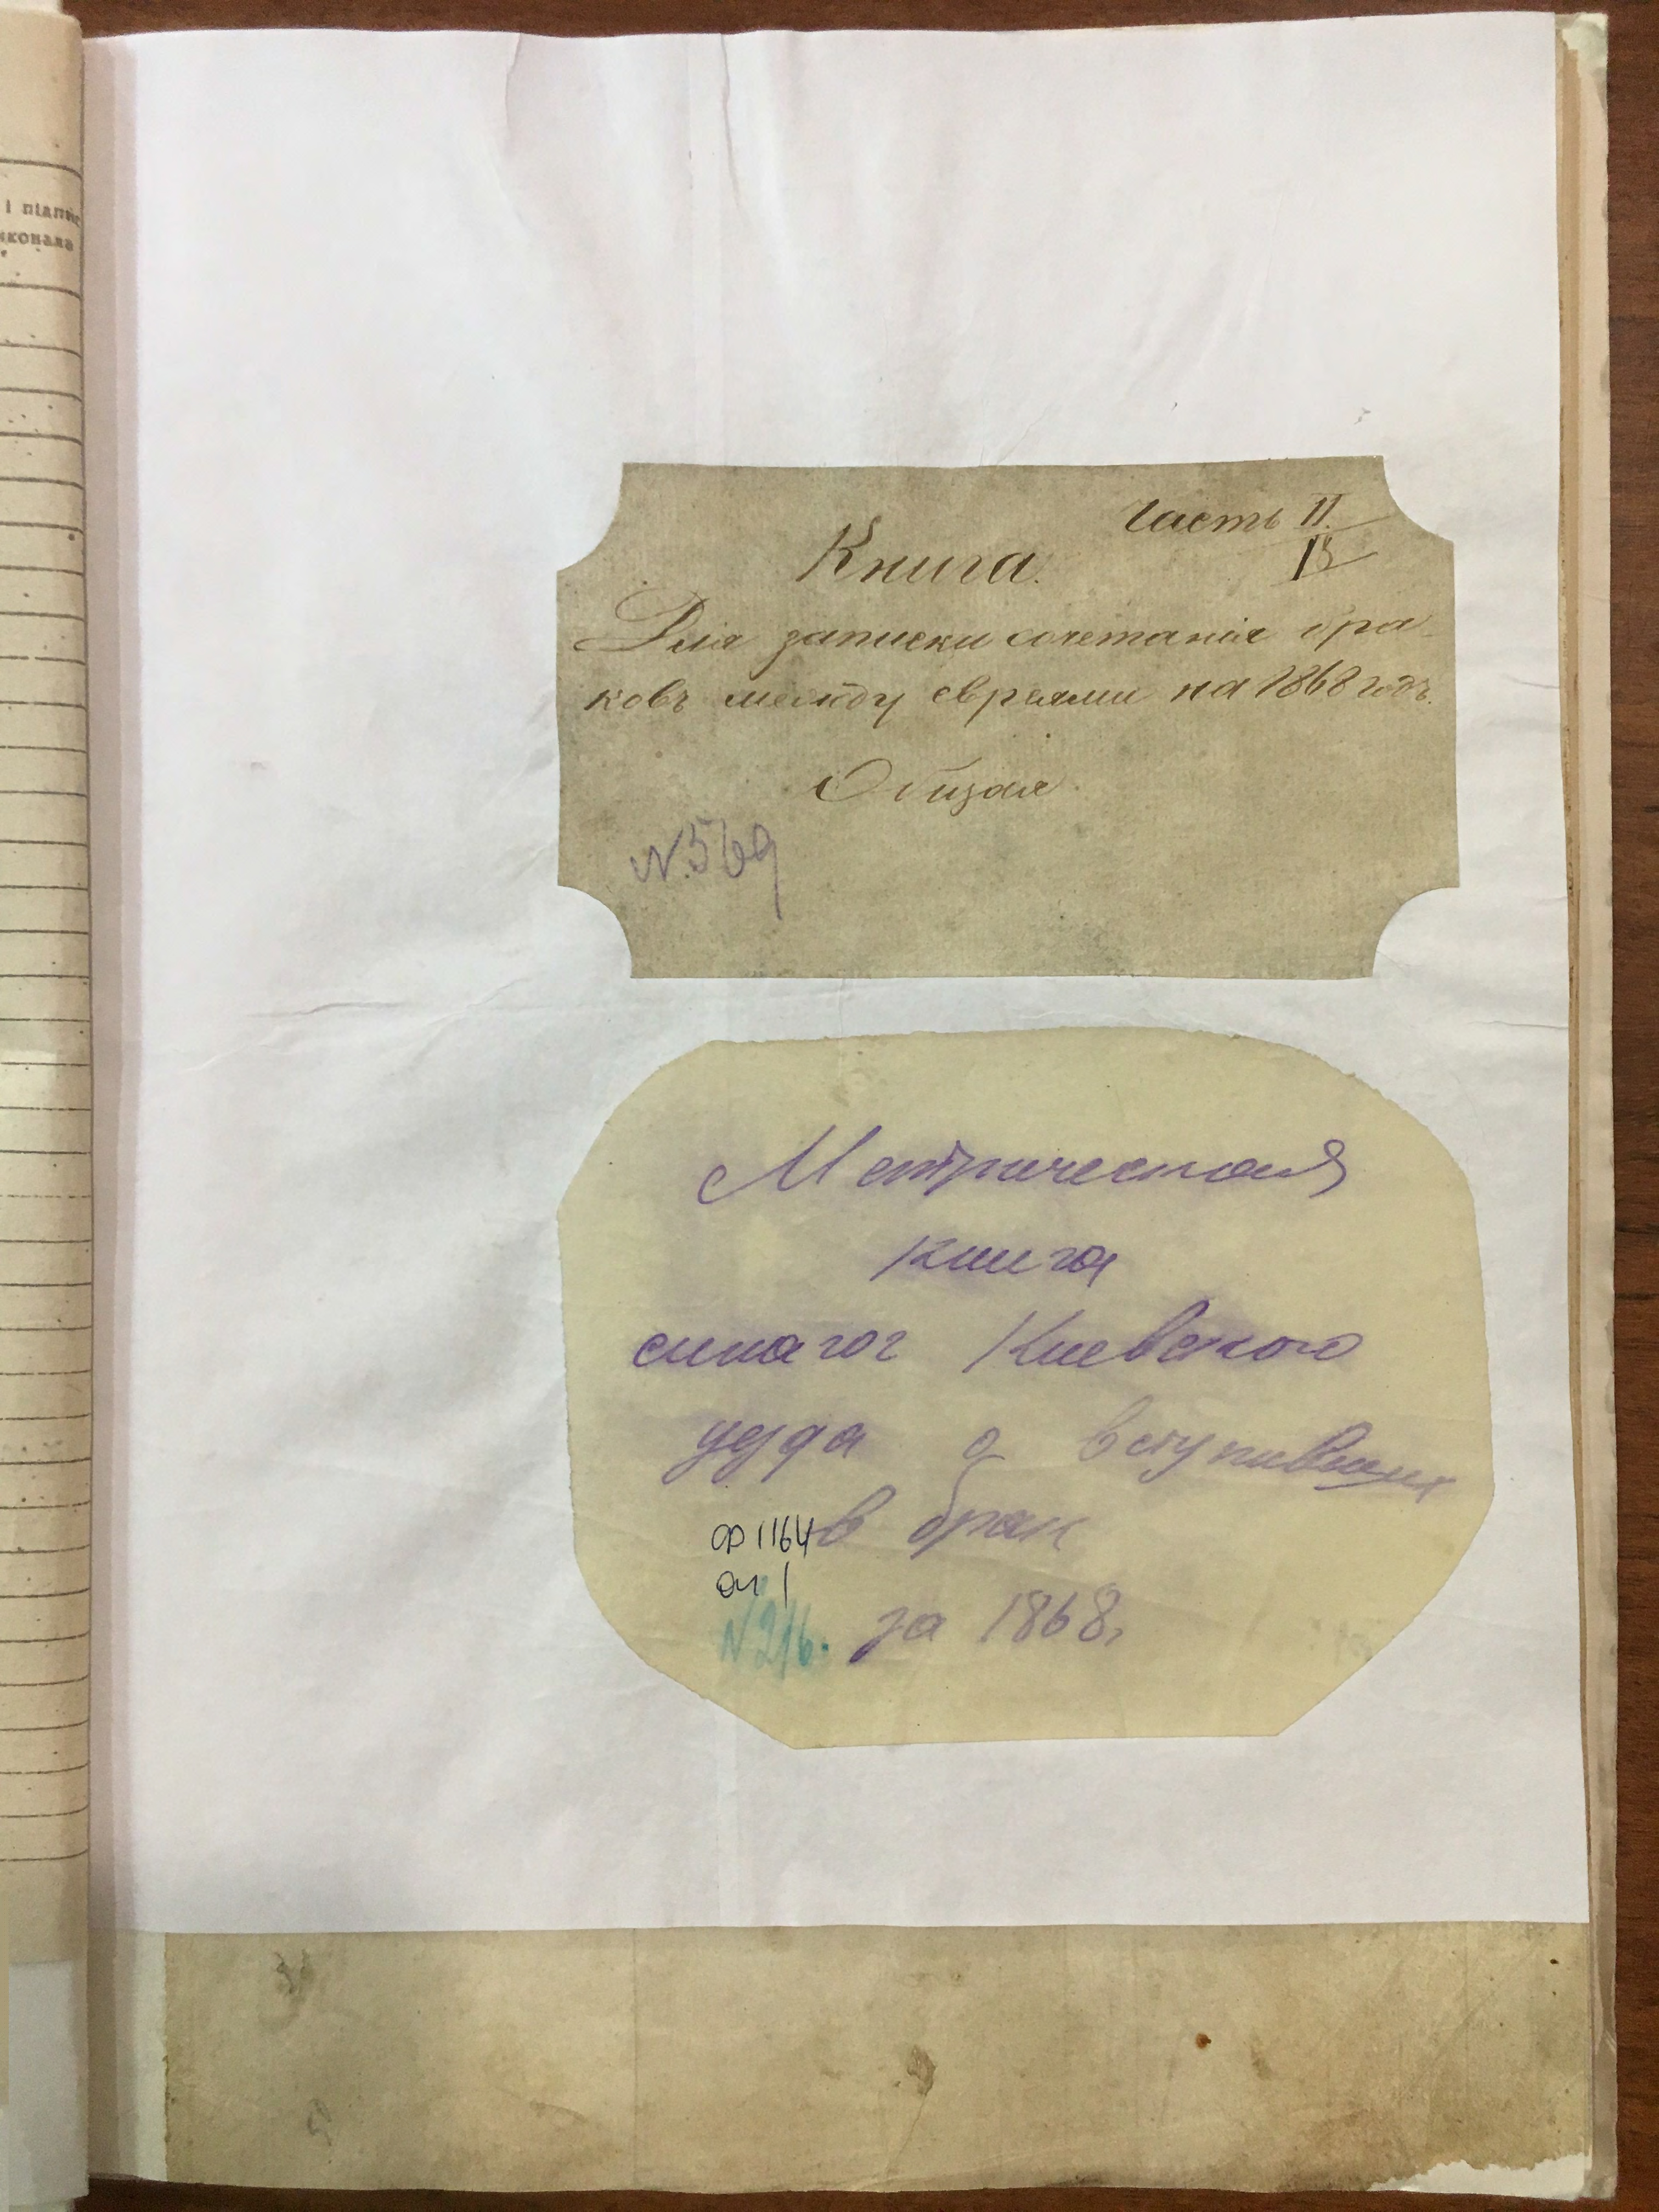 і підпис
иконала
Часть II.
13
Книга.
Для записки сочетанія бра-
ковъ между евреями на 1868 годъ.
Общая
N.569
Метрическая
книга
синагог Киевского
уезда о вступивших
в брак
ф 1164
оп 1
N216.
за 1868.